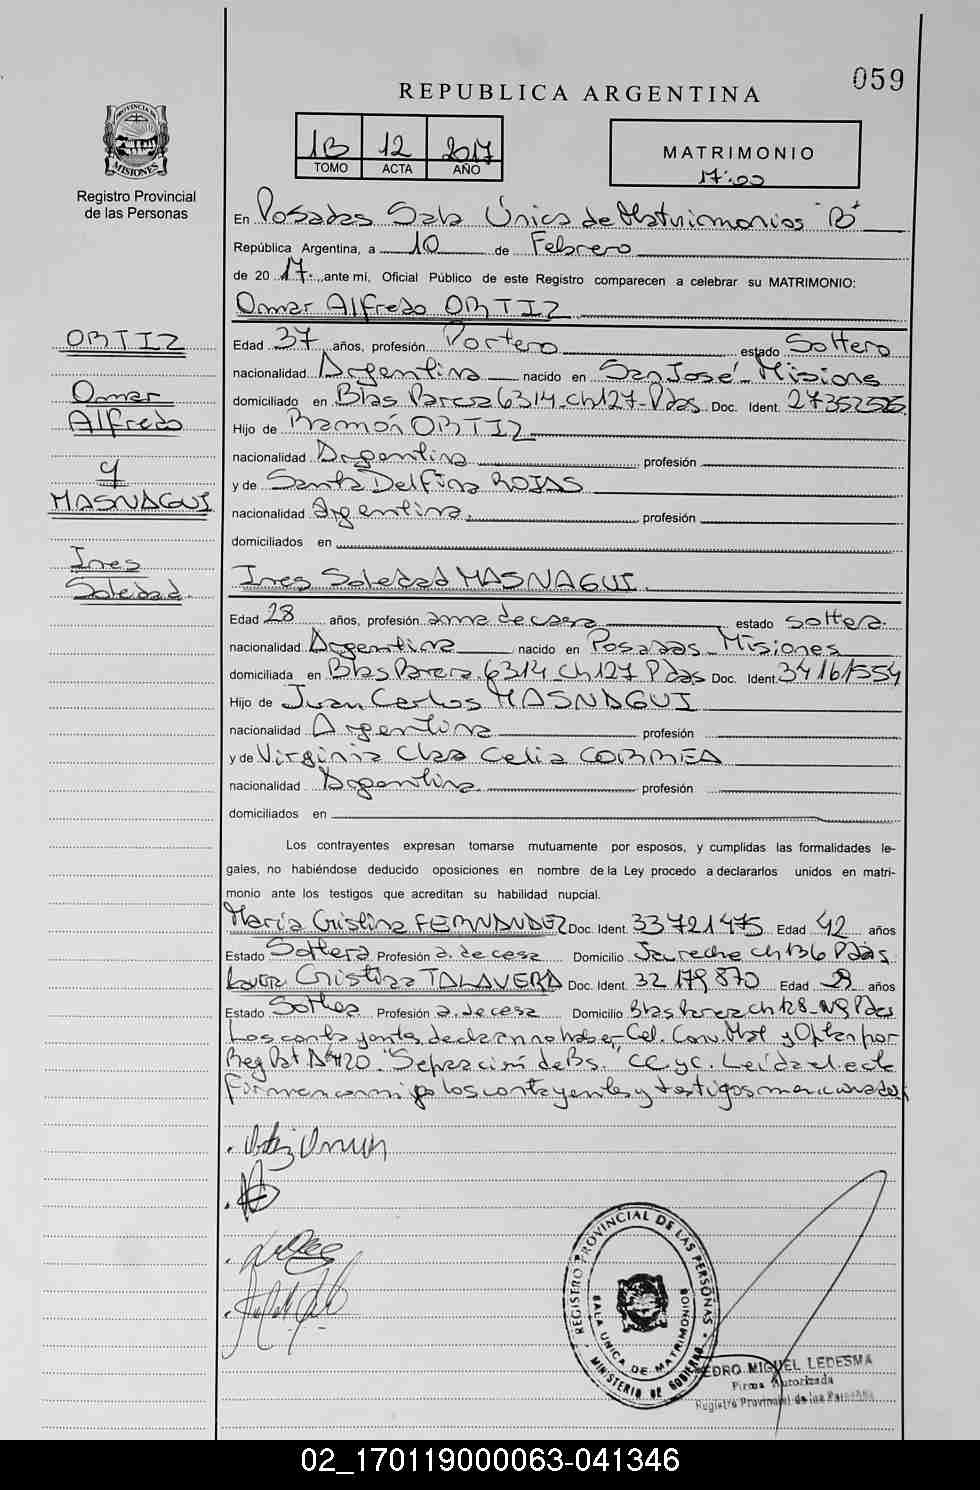 059
REPUBLICA ARGENTINA
PROVINCIA DE
MISIONES
Registro Provincial
de las Personas
1B 12 2017
TOMO ACTA AÑO
MATRIMONIO
17:00
En Posadas Sala Única de Matrimonios "B"
República Argentina, a 10 de Febrero
de 20 17. ante mi, Oficial Público de este Registro comparecen a celebrar su MATRIMONIO:
Omar Alfredo ORTIZ
ORTIZ
Omar
Alfredo
y
MASNAGUI
Ines
Soledad
Edad 37 años, profesión Portero estado Soltero
nacionalidad Argentina nacido en San José - Misiones
domiciliado en Blas Parera 6314 Ch 127 - Pdas Doc. Ident. 27352525
Hijo de Ramón ORTIZ
nacionalidad Argentina profesión
y de Santa Delfina ROJAS
nacionalidad Argentina. profesión
domiciliados en
Ines Soledad MASNAGUI
Edad 28 años, profesión ama de casa estado soltera.
nacionalidad Argentina nacido en Posadas - Misiones
domiciliada en Blas Parera 6314 Ch 127 Pdas Doc. Ident. 34161554
Hijo de Juan Carlos MASNAGUI
nacionalidad Argentina profesión
y de Virginia Celia CORREA
nacionalidad Argentina profesión
domiciliados en
Los contrayentes expresan tomarse mutuamente por esposos, y cumplidas las formalidades le-
gales, no habiéndose deducido oposiciones en nombre de la Ley procedo a declararlos unidos en matri-
monio ante los testigos que acreditan su habilidad nupcial.
María Cristina FERNANDEZ Doc. Ident. 33721475 Edad 42 años
Estado Soltera Profesión a. de casa Domicilio Jaureche Ch 136 Pdas.
Laura Cristina TALAVERA Doc. Ident. 32179870 Edad años
Estado Soltera Profesión a. de casa Domicilio Blas Parera Ch 128 - Nº9 Pdas
Los contrayentes declaran no haber Cel. Conv. Mat y Optan por
Reg Pat Aº 420 "Separación de Bs." CC y C. Leída el acta
firman conmigo los contrayentes y testigos mencionados
Ortiz Omar
REGISTRO PROVINCIAL DE LAS PERSONAS
SALA UNICA DE MATRIMONIOS
MINISTERIO DE GOBIERNO
PEDRO MIGUEL LEDESMA
Firma Autorizada
Registro Provincial de las Personas
02_170119000063-041346